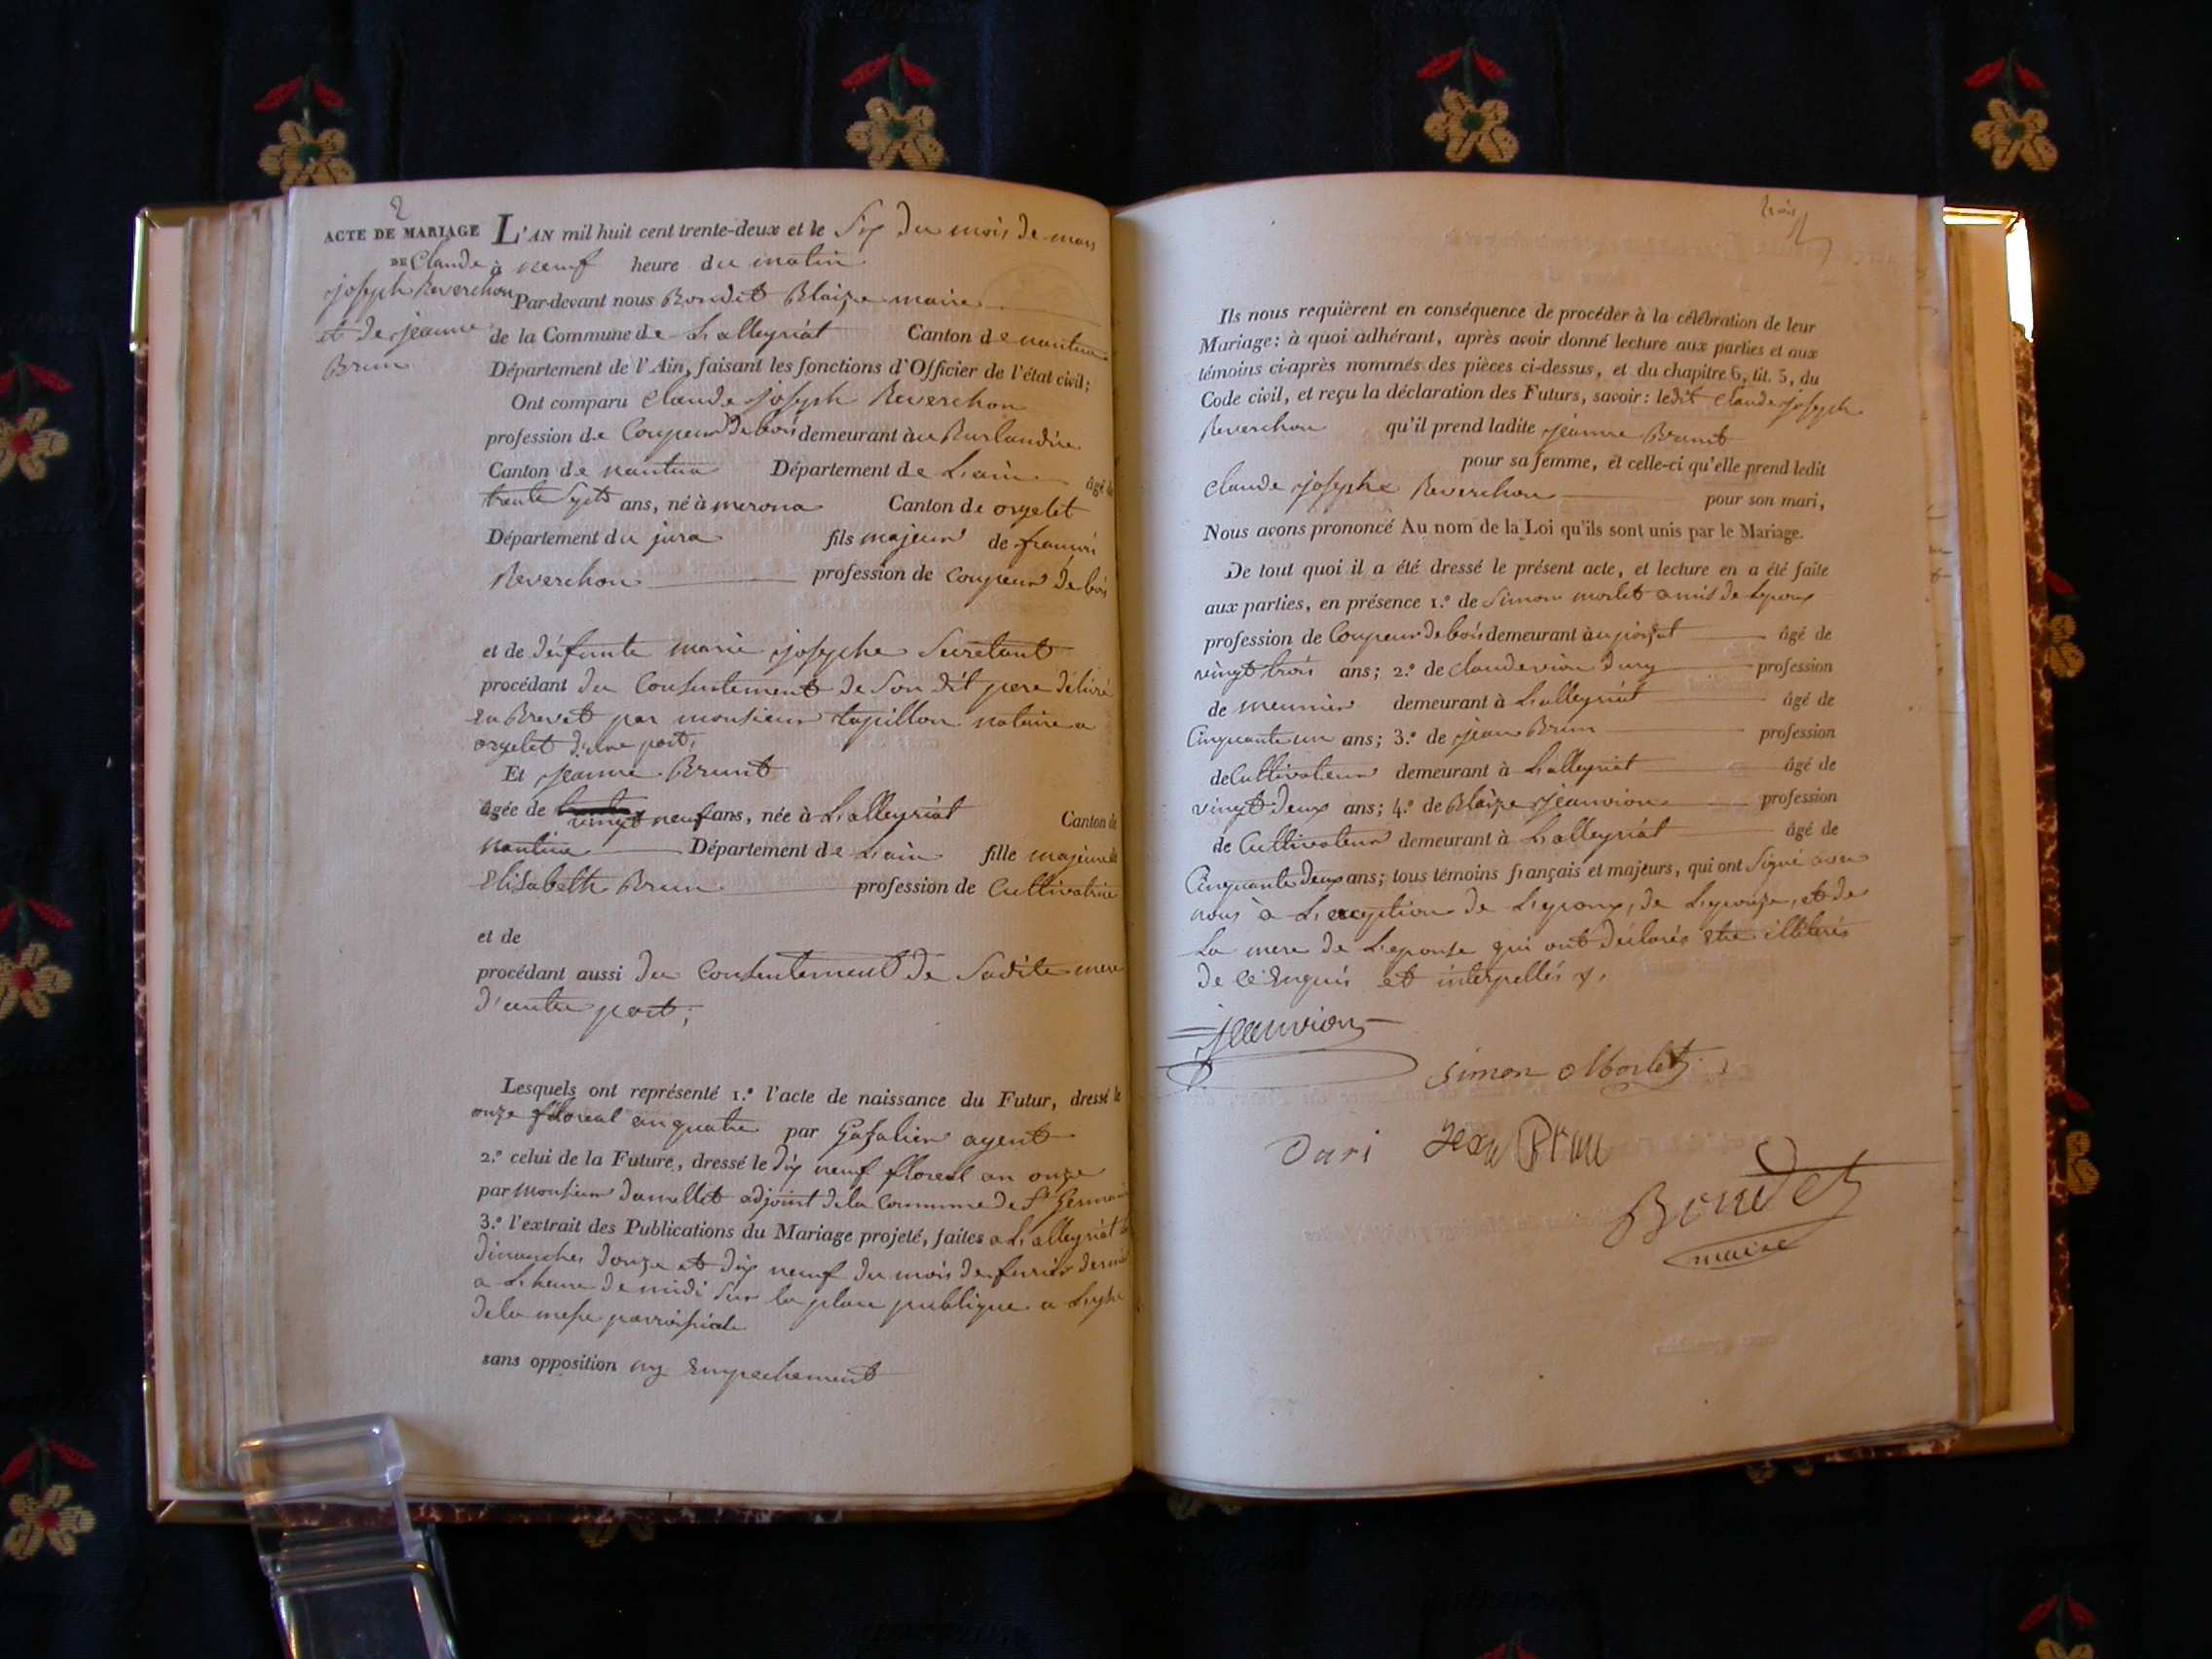 2
ACTE DE MARIAGE
DE Claude
joseph Reverchon
et de jeanne
Brun
L'AN mil huit cent trente-deux et le Six du mois de mars
à neuf heure du matin
Par-devant nous Bondet Blaize maire
de la Commune de L'alleyriat Canton de nantua
Département de l'Ain, faisant les fonctions d'Officier de l'état civil;
Ont comparu Claude joseph Reverchon
profession de Coupeur de bois demeurant à
Canton de nantua Département de L'ain âgé de
trente Sept ans, né à merona Canton de orgelet
Département du jura fils majeur de francois
Reverchon profession de Coupeur de bois
et de défunte marie josephe Secretant
procédant du Consentement de Son dit pere délivré
en Brevet par monsieur tapillon notaire a
orgelet d'une part,
Et jeanne Brunt
âgée de vingt neuf ans, née à L'alleyriat Canton de
nantua Département de L'ain fille majeure de
Elisabeth Brun profession de Cultivatrice
et de
procédant aussi du Consentement de Sadite mere
d'autre part;
Lesquels ont représenté 1.° l'acte de naissance du Futur, dressé le
onze floreal an quatre par agent
2.° celui de la Future, dressé le dix neuf floreal an onze
par monsieur adjoint de la Commune de St Germain
3.° l'extrait des Publications du Mariage projeté, faites a L'alleyriat les
dimanches douze et dix neuf du mois de fevrier dernier
a L'heure de midi Sur la place publique a
de la messe parroissiale
sans opposition ny Empechement
trois
Ils nous requièrent en conséquence de procéder à la célébration de leur
Mariage; à quoi adhérant, après avoir donné lecture aux parties et aux
témoins ci-après nommés des pièces ci-dessus, et du chapitre 6, tit. 5, du
Code civil, et reçu la déclaration des Futurs, savoir: ledit Claude joseph
Reverchon qu'il prend ladite jeanne Brunt
pour sa femme, et celle-ci qu'elle prend ledit
Claude josephe Reverchon pour son mari,
Nous avons prononcé Au nom de la Loi qu'ils sont unis par le Mariage.
De tout quoi il a été dressé le présent acte, et lecture en a été faite
aux parties, en présence 1.° de Simon morlet amis de Lepoux
profession de Coupeur de bois demeurant à âgé de
vingt trois ans; 2.° de profession
de meunier demeurant à L'alleyriat âgé de
Cinquante un ans; 3.° de jean Brun profession
de Cultivateur demeurant à L'alleyriat âgé de
vingt deux ans; 4.° de Blaize jeanvion profession
de Cultivateur demeurant à L'alleyriat âgé de
Cinquante deux ans; tous témoins français et majeurs, qui ont Signé avec
nous a L'exception de Lepoux, de Lepouze, et de
La mere de Lepouse qui ont déclarés etre illiterés
de ce Enquis et interpellés
jeanvion
Simon Morlet
Dari Jean Brun
Bondet
maire